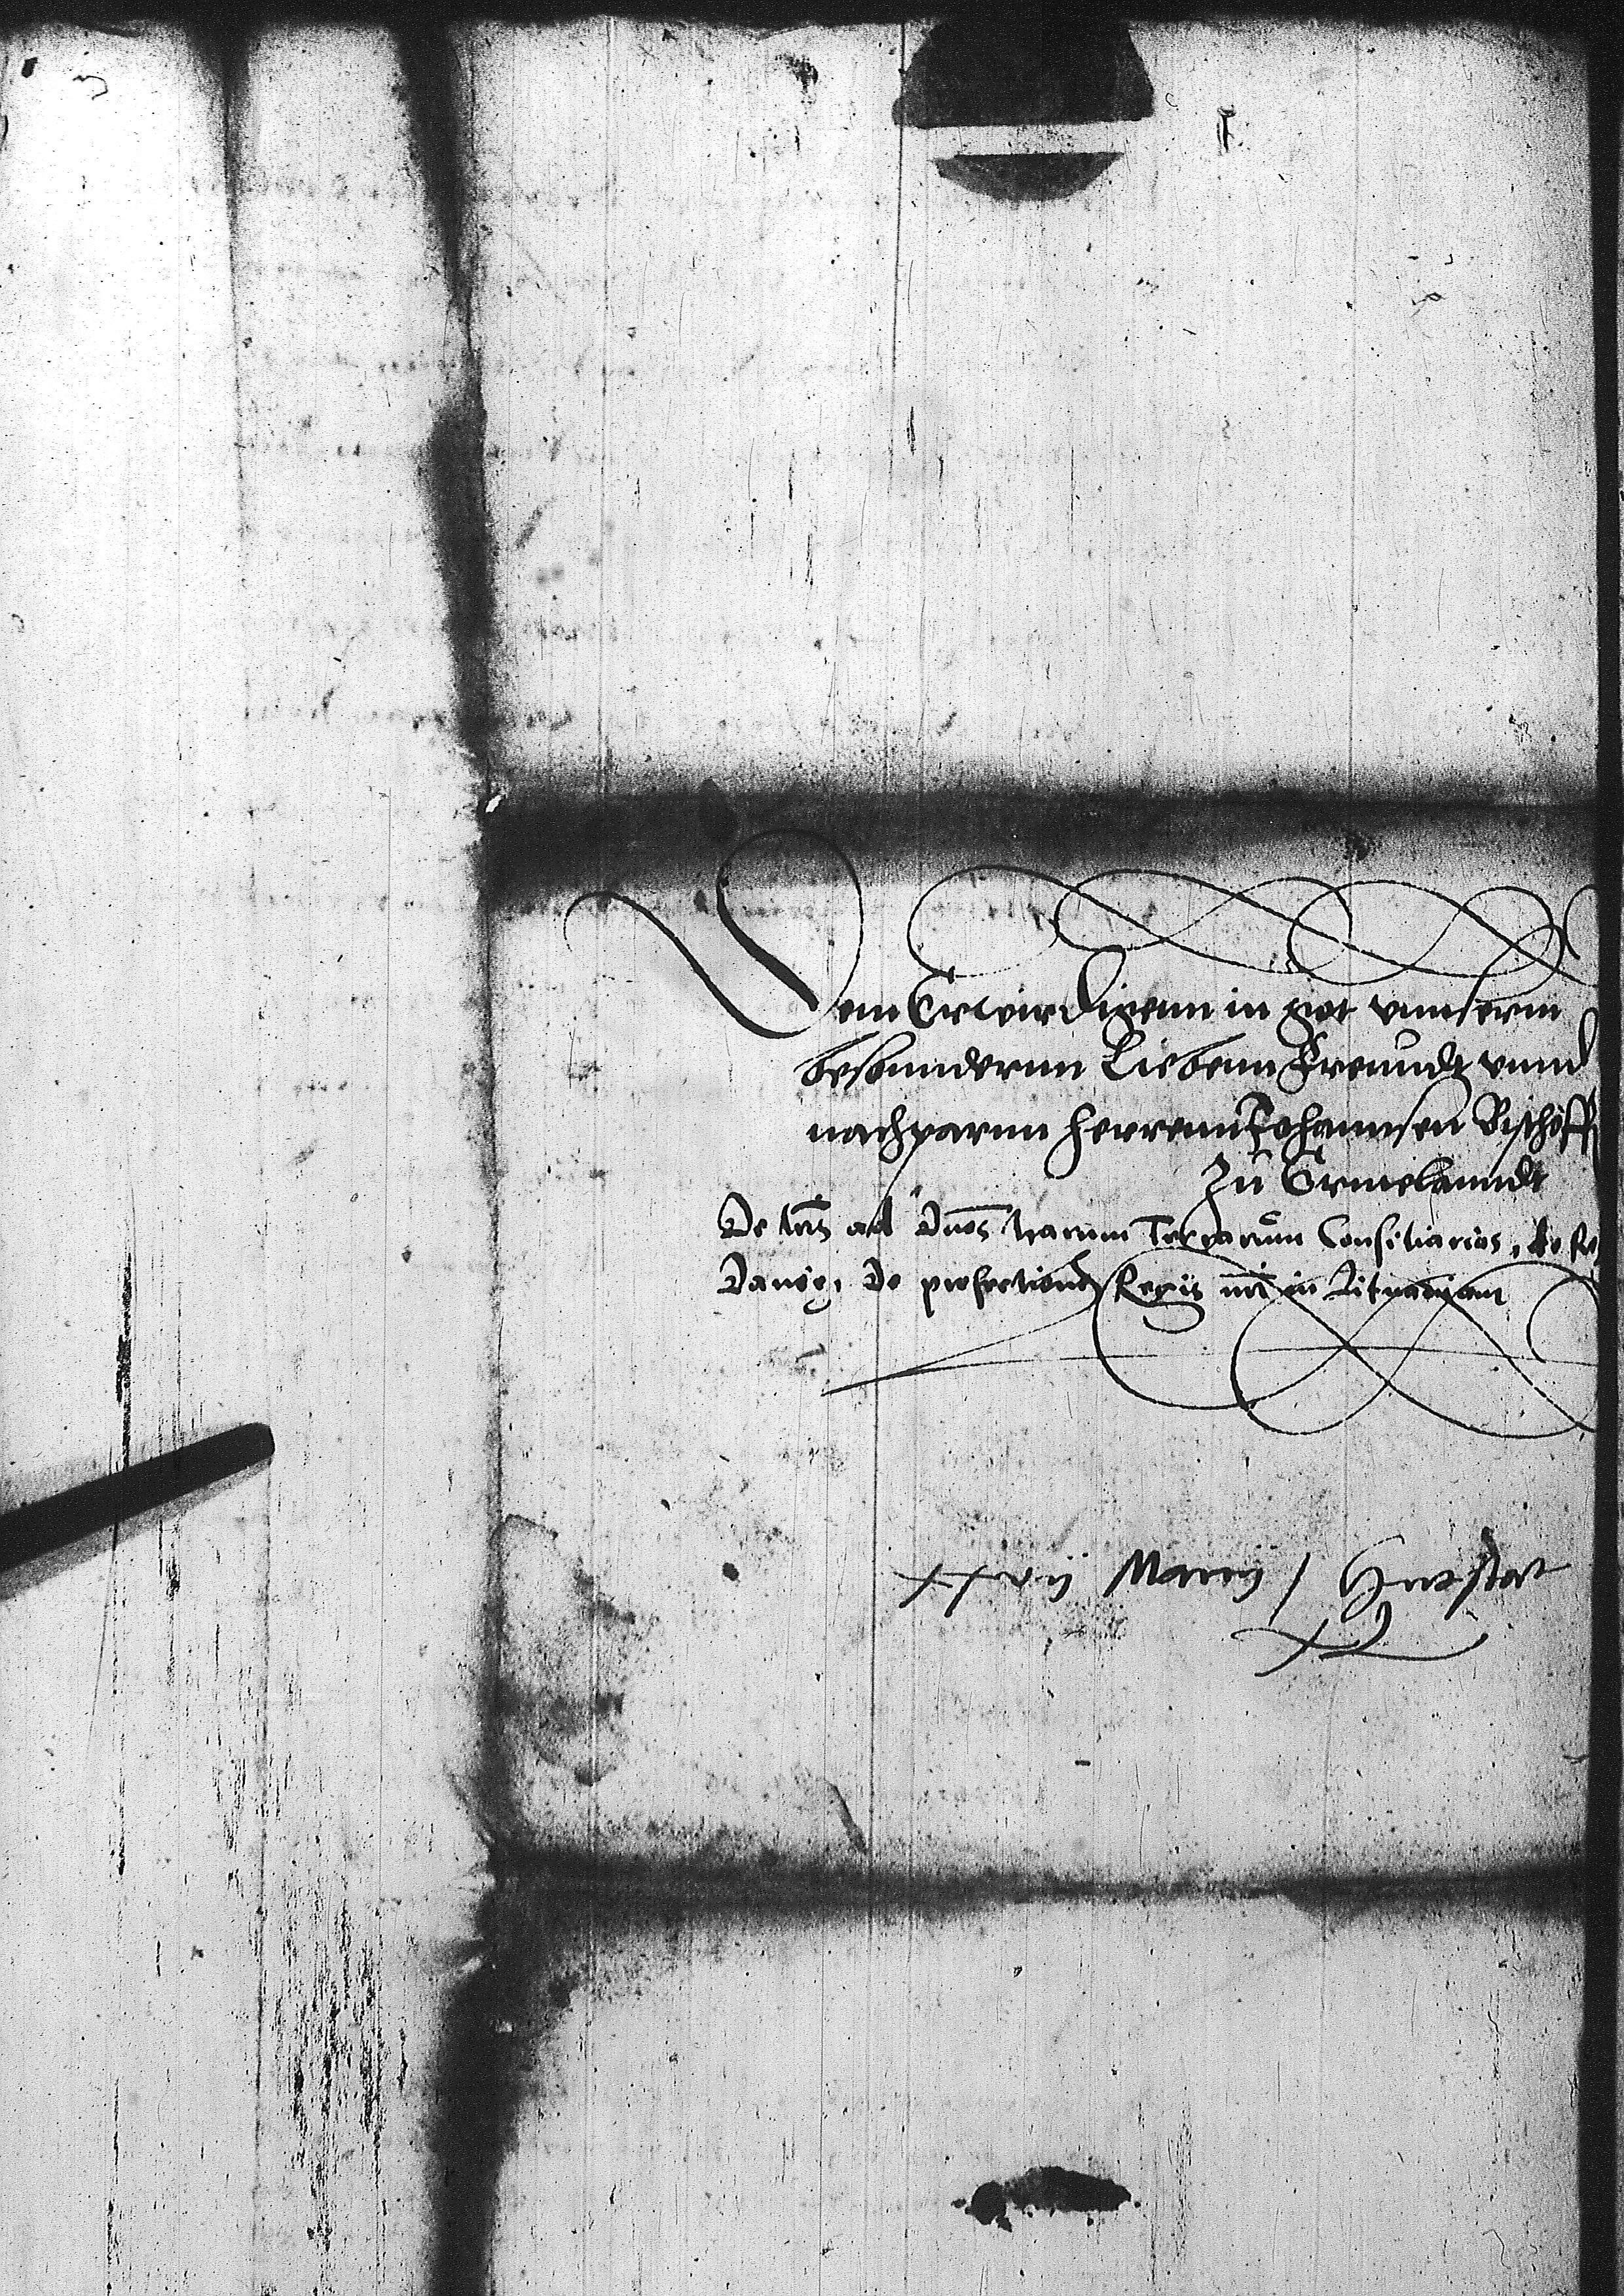 Dem Erwirdigenn in got vnnserm
besonndernn Liebenn Freundt vnnd
nachparnn herrenn Johannsen Bischoff
Zu Ermelanndt
De lris ad dnos harum Terrarum Consiliarios, de
De profectione Regis in Lituaniam
xxvij Marcij